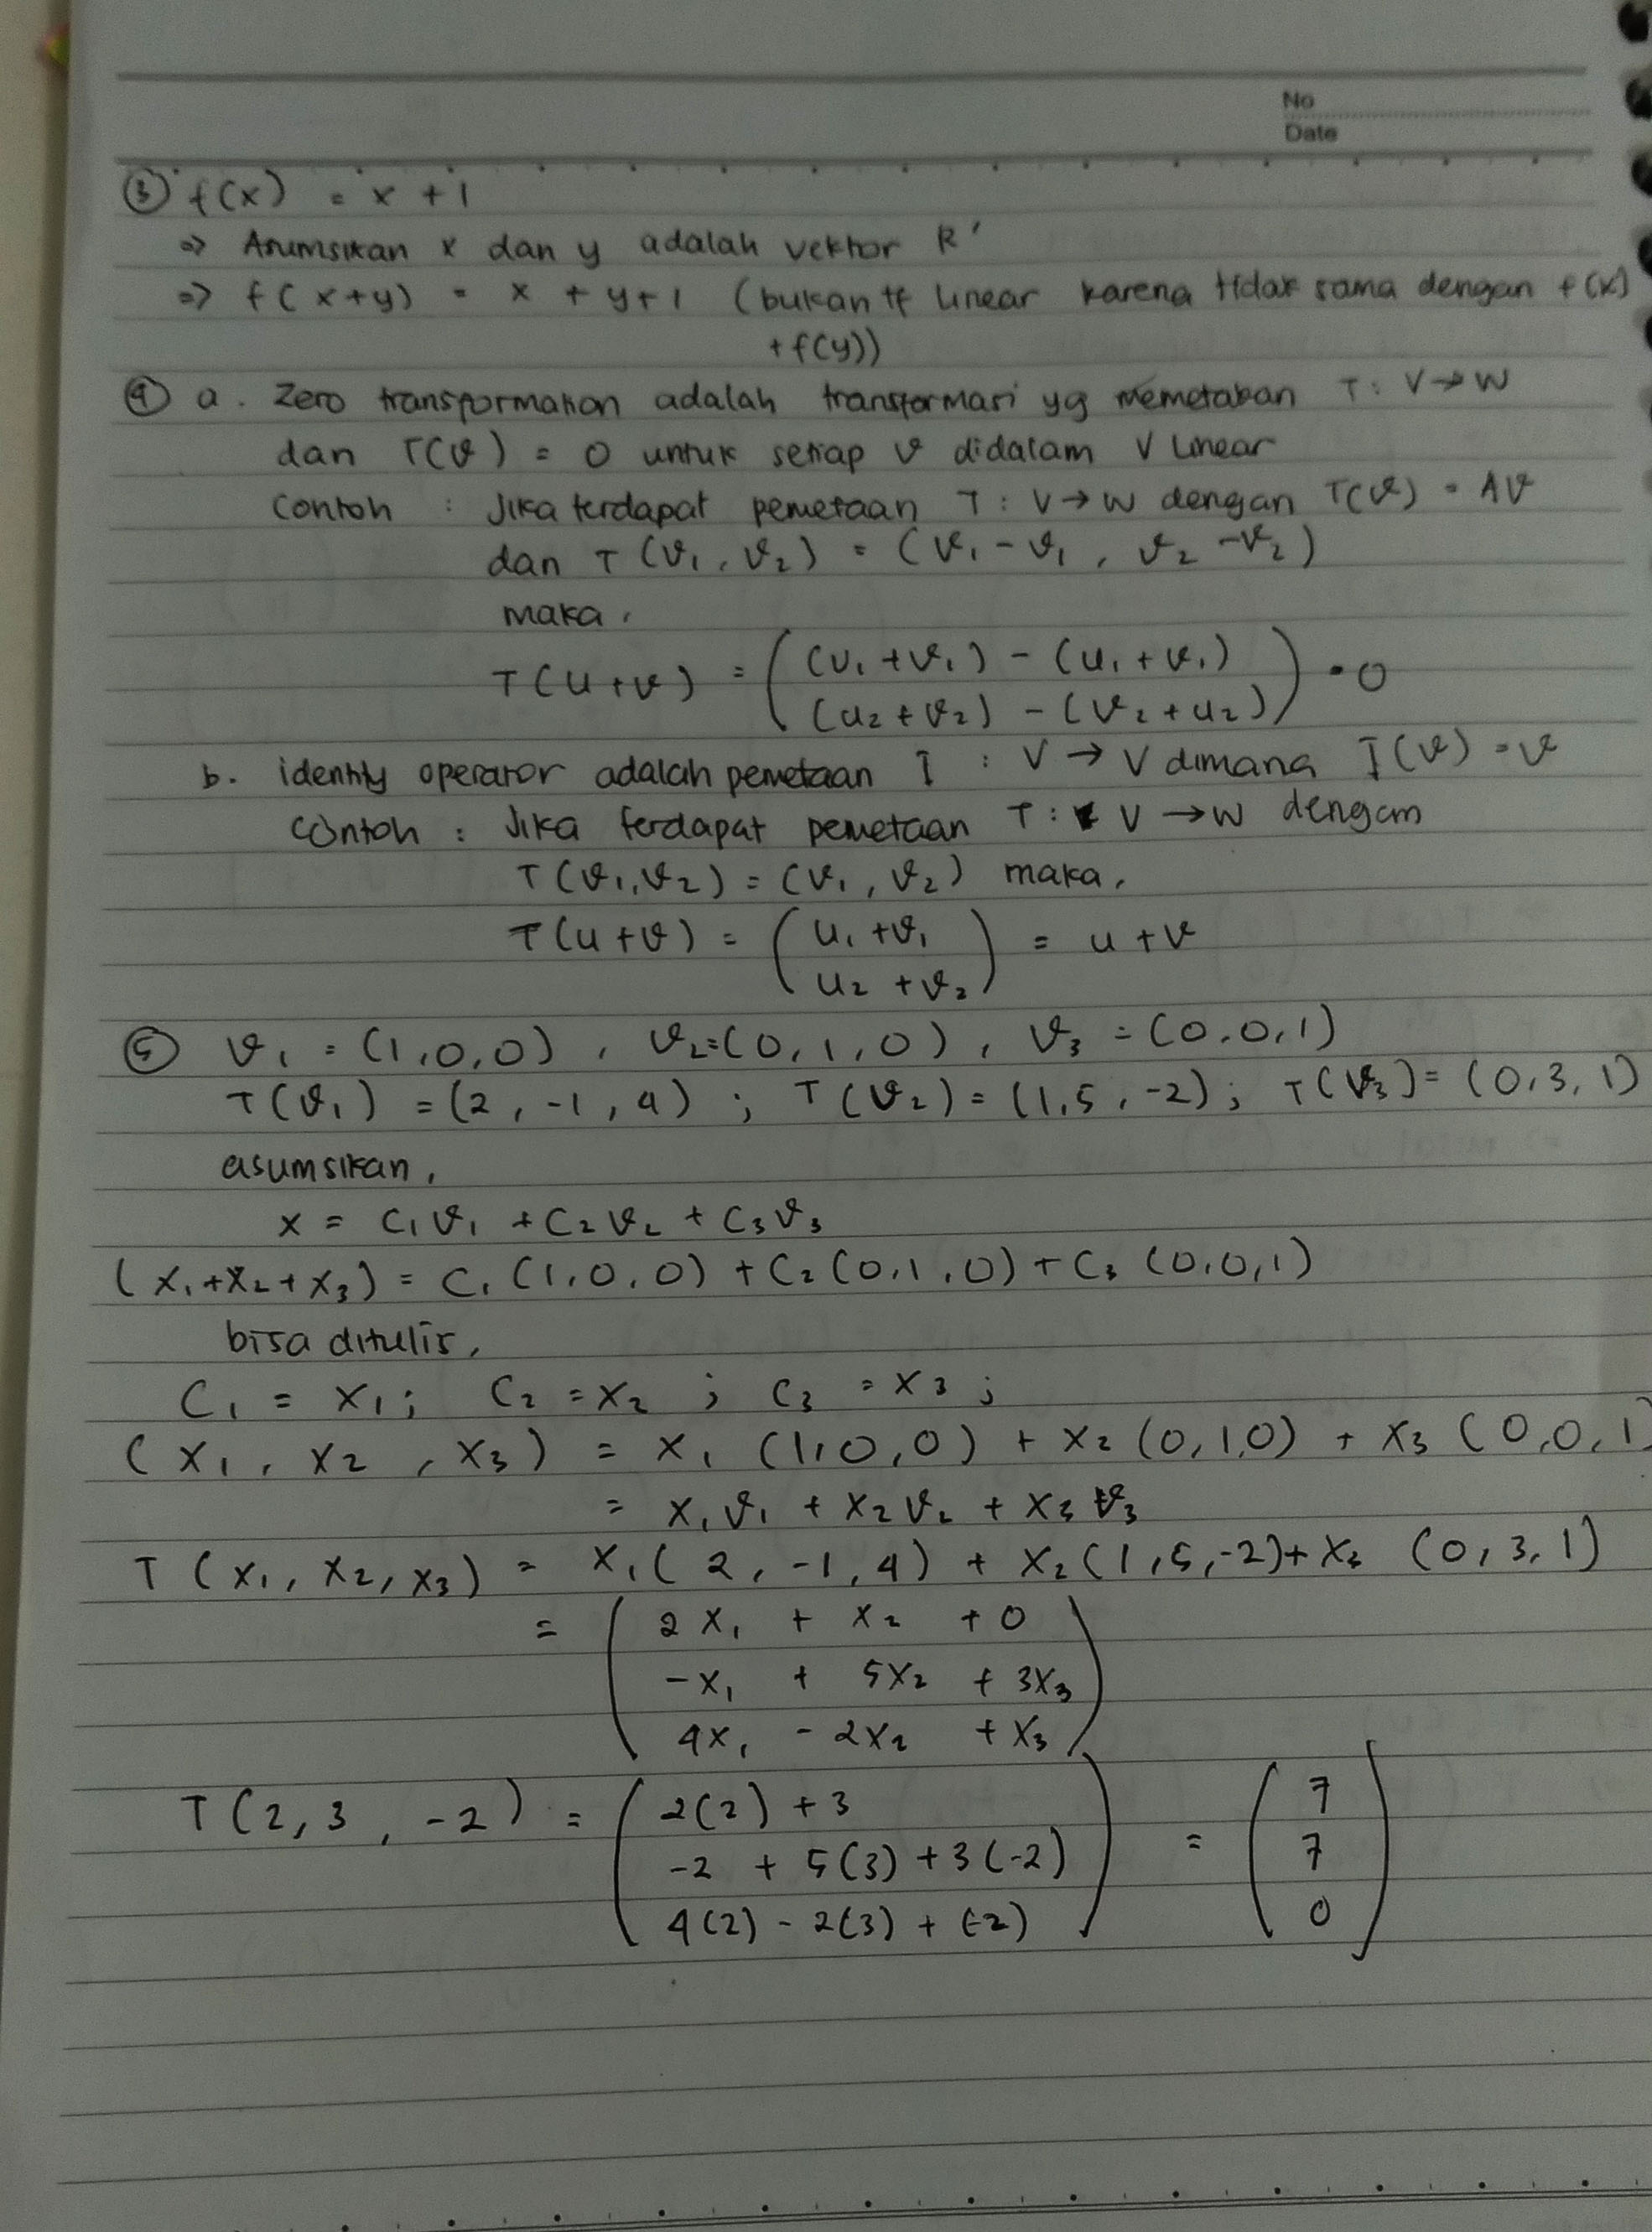 No
Date
③ f(x) = x + 1
=> Asumsikan x dan y adalah vektor R'
=> f(x+y) = x + y + 1 (bukan tf linear karena tidak sama dengan f(x)
+ f(y))
④ a. Zero transformation adalah transformasi yg memetakan T : V → W
dan T(v) = 0 untuk setiap v didalam V linear
Contoh : Jika terdapat pemetaan T : V → W dengan T(v) = Av
dan T (v₁, v₂) = (v₁ - v₁, v₂ - v₂)
maka,
T(u+v) = ( (u₁ + v₁) - (u₁ + v₁)
(u₂ + v₂) - (v₂ + u₂) ) = 0
b. identity operator adalah pemetaan I : V → V dimana I(v) = v
Contoh : Jika terdapat pemetaan T : V → W dengan
T(v₁, v₂) = (v₁, v₂) maka,
T(u+v) = ( u₁ + v₁
u₂ + v₂ ) = u + v
⑤ v₁ = (1,0,0), v₂ = (0,1,0), v₃ = (0,0,1)
T(v₁) = (2, -1, 4) ; T(v₂) = (1,5,-2) ; T(v₃) = (0,3,1)
asumsikan,
x = c₁v₁ + c₂v₂ + c₃v₃
(x₁+x₂+x₃) = c₁(1,0,0) + c₂(0,1,0) + c₃(0,0,1)
bisa ditulis,
C₁ = x₁; C₂ = x₂ ; C₃ = x₃ ;
(x₁, x₂, x₃) = x₁ (1,0,0) + x₂ (0,1,0) + x₃ (0,0,1
= x₁v₁ + x₂v₂ + x₃v₃
T(x₁, x₂, x₃) = x₁(2, -1, 4) + x₂(1,5,-2) + x₃ (0,3,1)
= ( 2x₁ + x₂ + 0
-x₁ + 5x₂ + 3x₃
4x₁ - 2x₂ + x₃ )
T(2, 3, -2) = ( 2(2) + 3
-2 + 5(3) + 3(-2)
4(2) - 2(3) + (-2) ) = ( 7
7
0 )